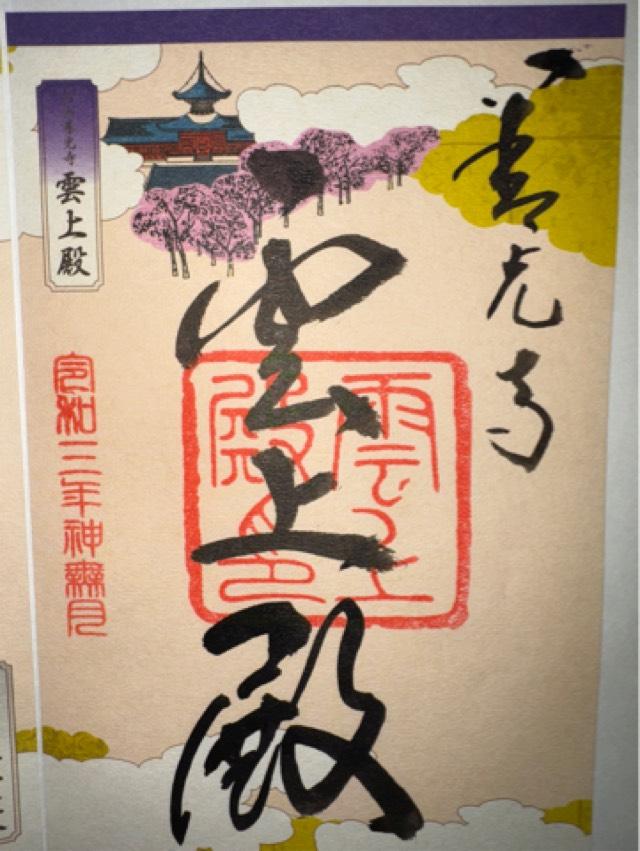 善光寺
雲上殿
雲上
殿印
善光寺
雲上殿
令和三年神無月